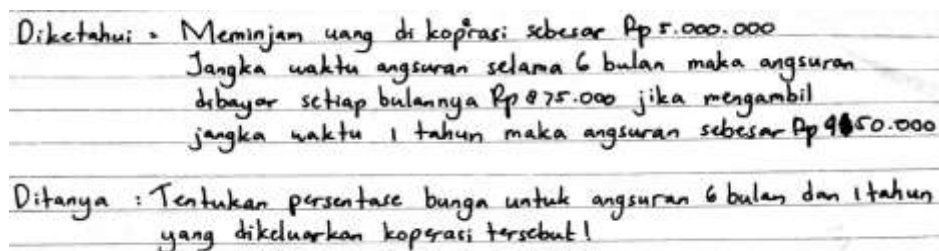 Diketahui : Meminjam uang di koprasi sebesar Rp 5.000.000
Jangka waktu angsuran selama 6 bulan maka angsuran
dibayar setiap bulannya Rp 875.000 jika mengambil
jangka waktu 1 tahun maka angsuran sebesar Rp
Ditanya : Tentukan persentase bunga untuk angsuran 6 bulan dan 1 tahun
yang dikeluarkan koperasi tersebut!